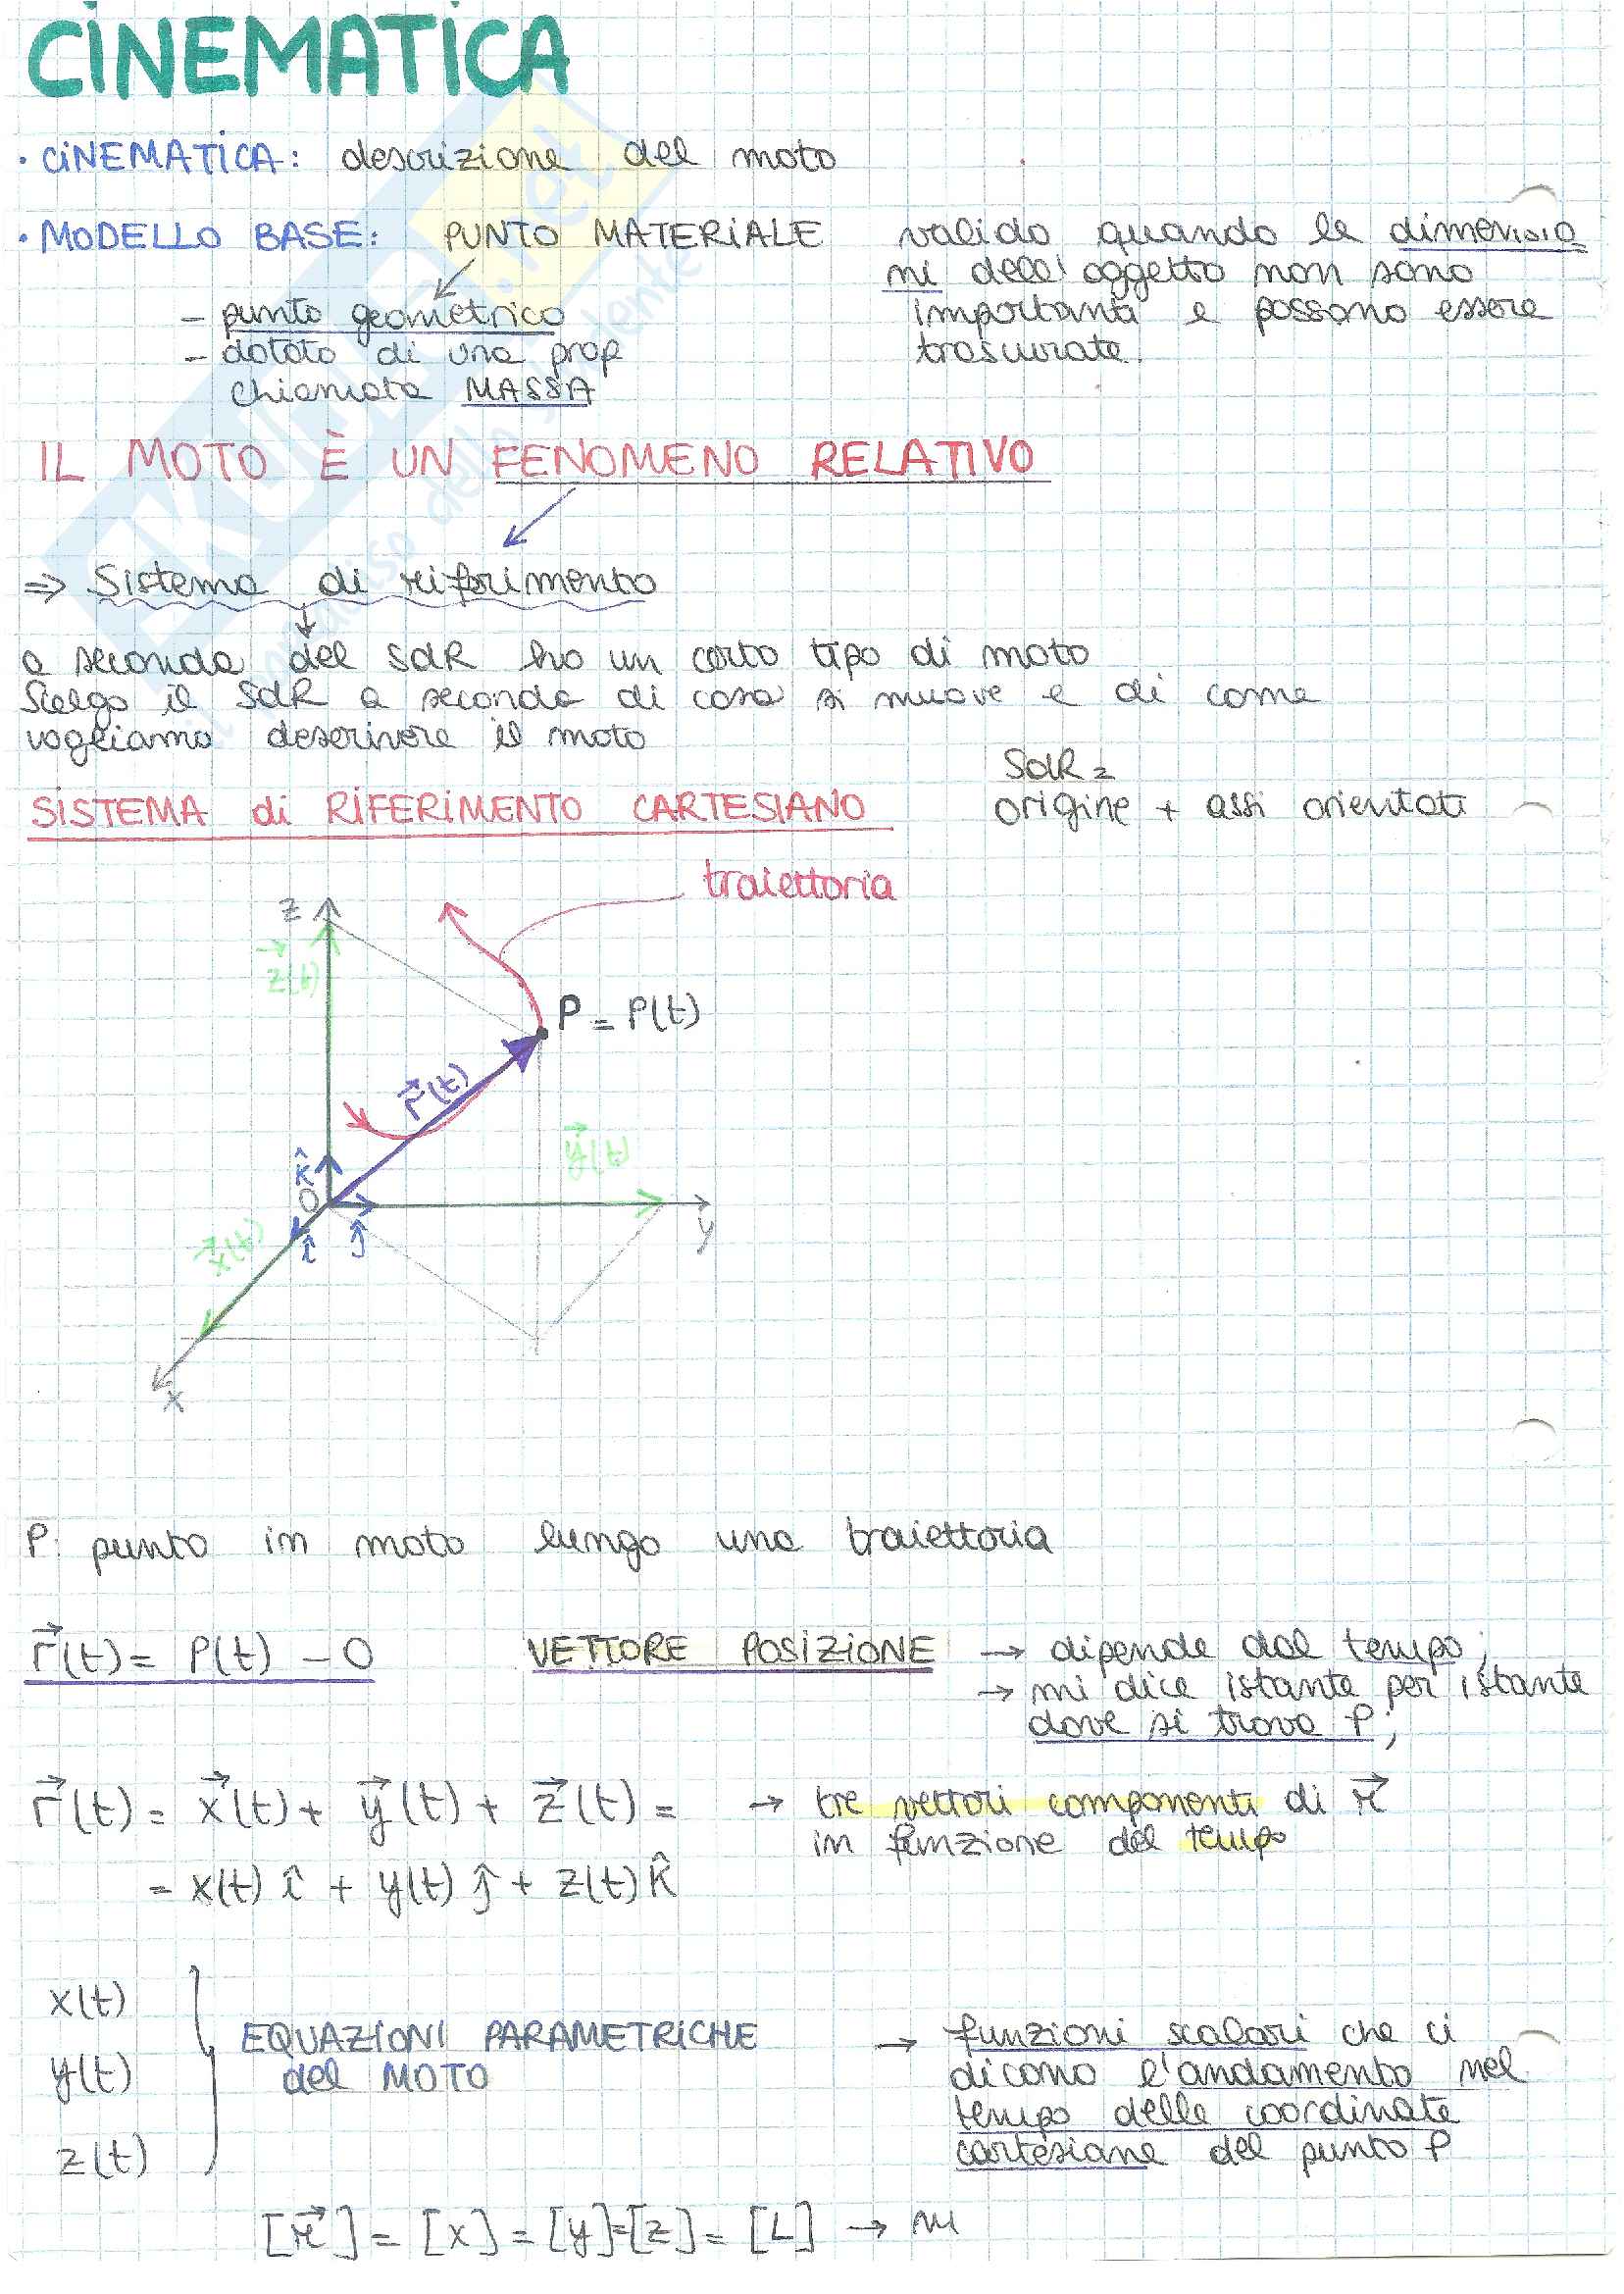 CINEMATICA
· CINEMATICA: descrizione del moto
· MODELLO BASE: PUNTO MATERIALE
- punto geometrico
- dotato di una prop
chiamata MASSA
valido quando le dimensio
ni dell'oggetto non sono
importanti e possono essere
trascurate.
IL MOTO È UN FENOMENO RELATIVO
⇒ Sistema di riferimento
a seconda del SdR ho un certo tipo di moto
Scelgo il SdR a seconda di cosa si muove e di come
vogliamo descrivere il moto
SISTEMA di RIFERIMENTO CARTESIANO
SdR =
origine + assi orientati
traiettoria
z
z⃗(t)
P = P(t)
r⃗(t)
y⃗(t)
k̂
O
x⃗(t)
î
ĵ
y
x
P: punto in moto lungo una traiettoria
r⃗(t) = P(t) - O VETTORE POSIZIONE → dipende dal tempo;
→ mi dice istante per istante
dove si trova P;
r⃗(t) = x⃗(t) + y⃗(t) + z⃗(t) = → tre vettori componenti di r⃗
in funzione del tempo
= x(t) î + y(t) ĵ + z(t) k̂
x(t)
y(t)
z(t)
EQUAZIONI PARAMETRICHE
del MOTO
→ funzioni scalari che ci
dicono l'andamento nel
tempo delle coordinate
cartesiane del punto P
[r⃗] = [x] = [y] = [z] = [L] → m